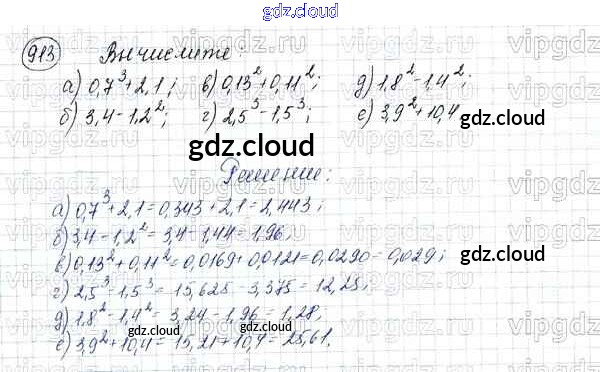 gdz.cloud
913 Вычислите:
а) 0,7³+2,1; в) 0,13²+0,11²; д) 1,8²-1,4²;
б) 3,4-1,2²; г) 2,5³-1,5³; е) 3,9²+10,4
gdz.cloud
gdz.cloud
Решение:
а) 0,7³+2,1=0,343+2,1=2,443;
б) 3,4-1,2²=3,4-1,44=1,96;
в) 0,13²+0,11²=0,0169+0,0121=0,0290=0,029;
г) 2,5³-1,5³=15,625-3,375=12,25;
д) 1,8²-1,4²=3,24-1,96=1,28;
е) 3,9²+10,4=15,21+10,4=25,61.
gdz.cloud
gdz.cloud